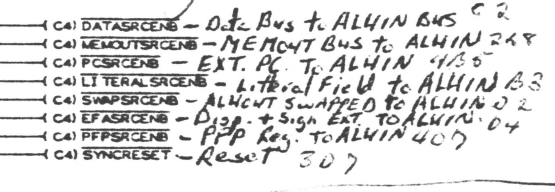 C4) DATASRCENB - Data Bus to ALUIN BUS C2
C4) MEMOUTSRCENB - MEMOUT BUS to ALUIN 2&8
C4) PCSRCENB - EXT. PC. To ALUIN 4B5
C4) LITERALSRCENB - Litteral Field to ALUIN B3
C4) SWAPSRCENB - ALUOUT SWAPPED to ALUIN 02
C4) EFASRCENB - Disp. + Sign Ext. TO ALUIN. 04
C4) PFPSRCENB - PFP Reg. To ALUIN 407
C4) SYNCRESET - Reset 307